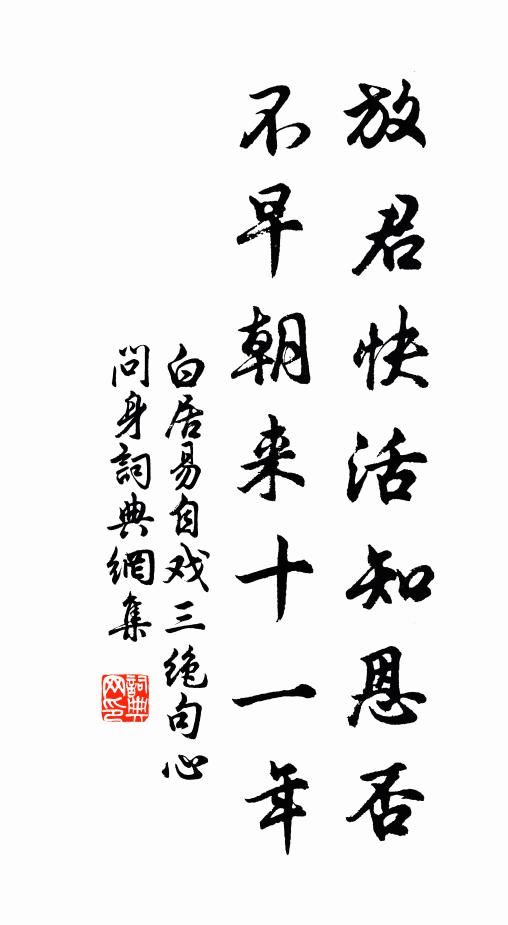 放君快活知恩否
不早朝来十一年
白居易自戏三绝句心
问身詞典網集
詞典网印